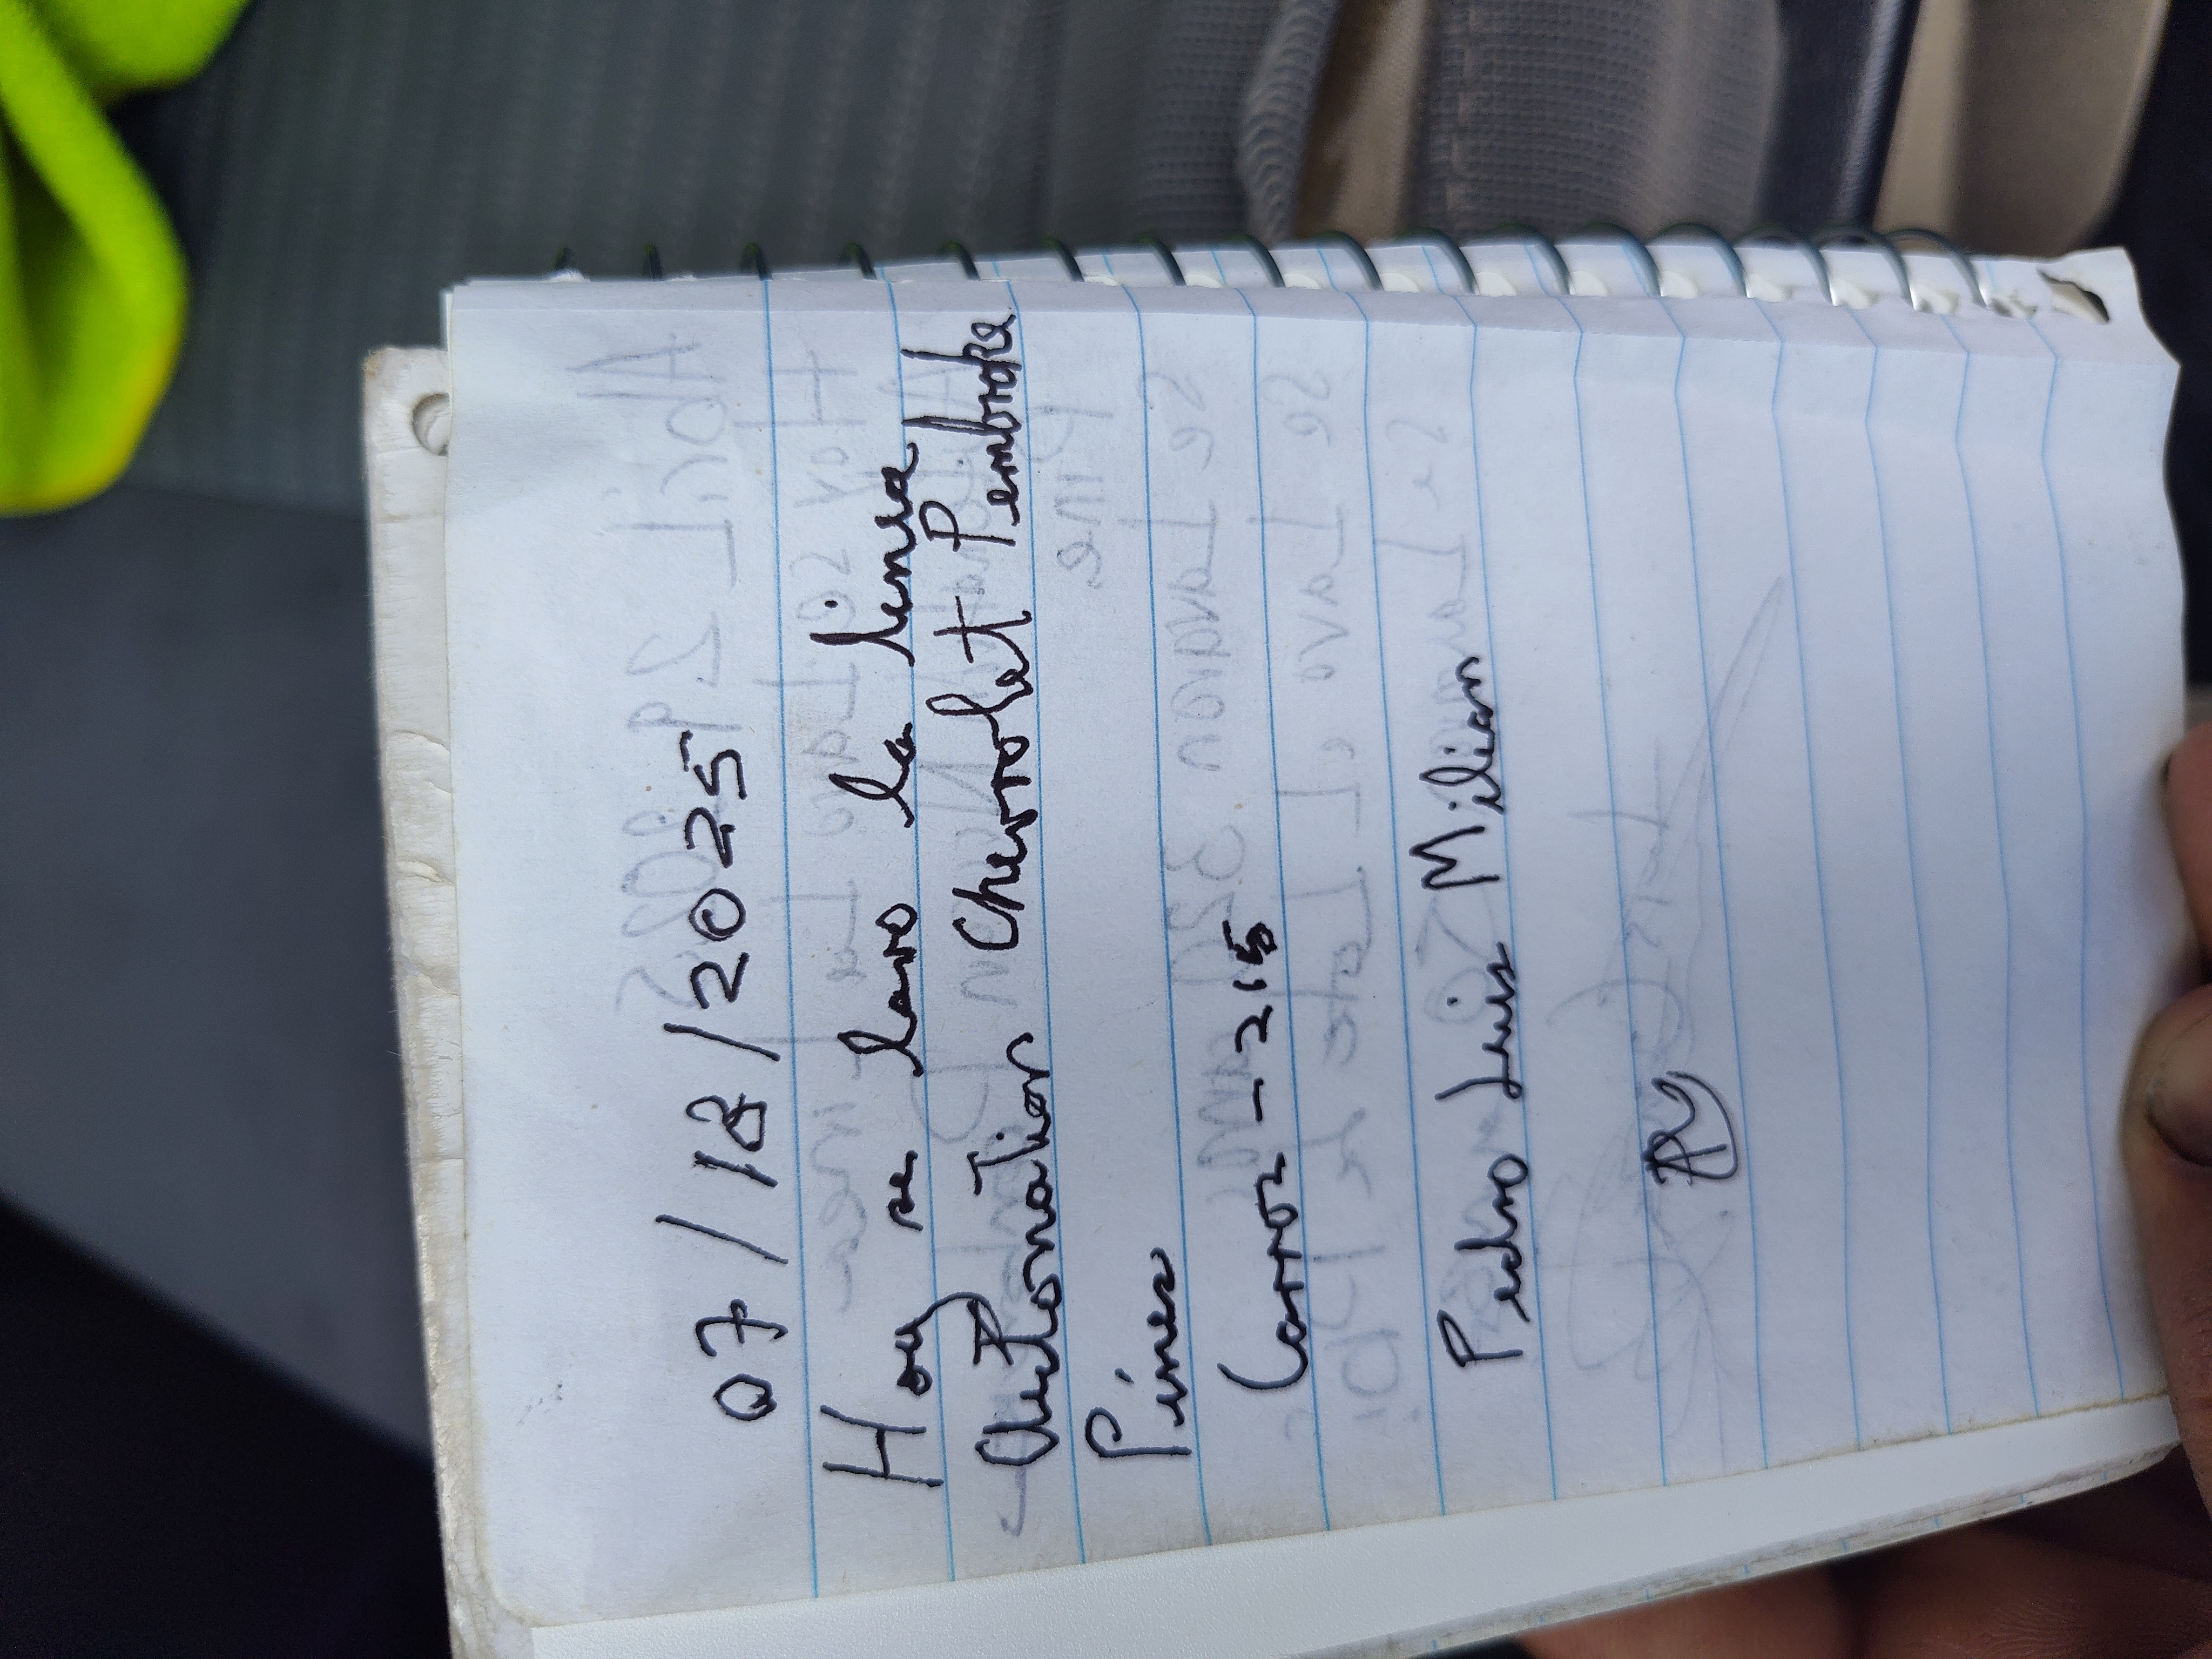 07/18/2025
Hoy se lavo la linea
Autonation Chevrolet Pembroke
Pines
Carros - 215
Pedro Luis Milian